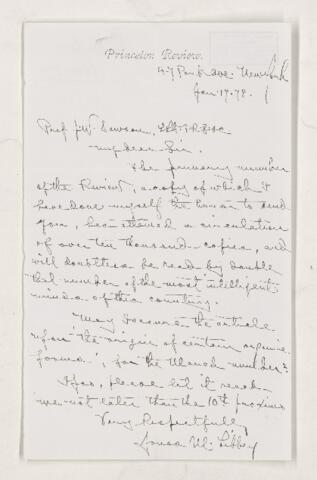 Princeton Review.
47 Park Ave. New York
Jan 17. 78.
Prof J.W. Dawson, LL.D. F.R.S. &c.
My dear Sir.
The January number
of the Review, a copy of which I
have done myself the honor to send
you, has attained a circulation
of over ten thousand copies, and
will doubtless be read by double
that number of the most intelligent
minds of this country.
May I secure the article
upon "the origin of certain organic
forms", for the March number?
If so, please let it reach
me not later than the 10th proximo
Very Respectfully
Jonas M. Libbey